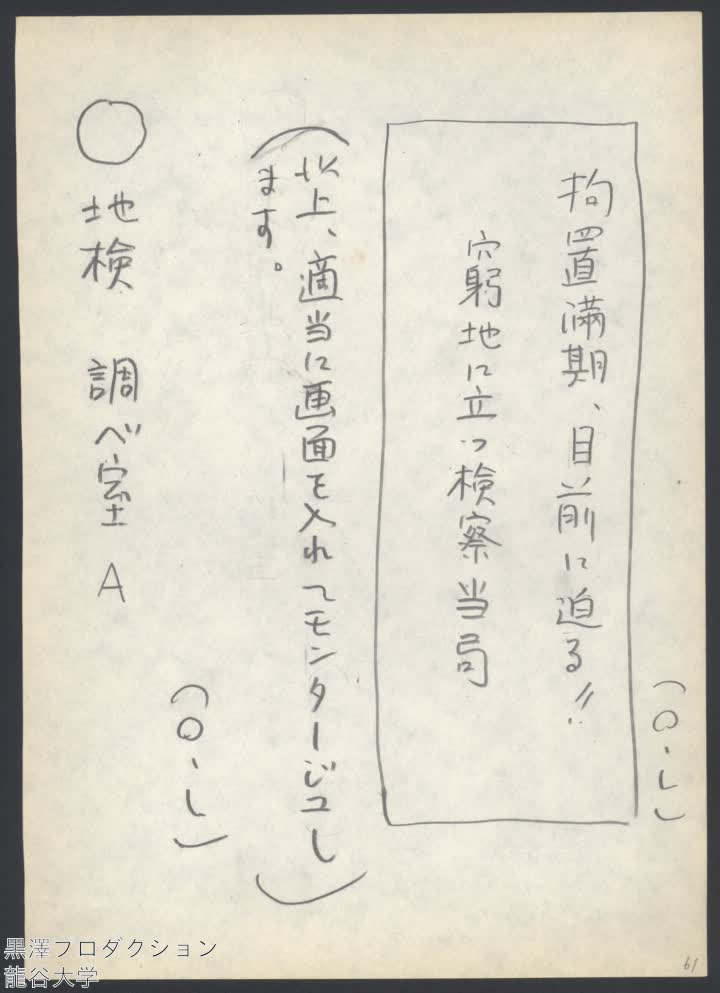 （O・L）
拘置満期、目前に迫る!!
窮地に立つ検察当局
（以上、適当に画面を入れてモンタージュし
ます。）
（O・L）
○ 地検 調べ室 A
61
黒澤プロダクション
龍谷大学